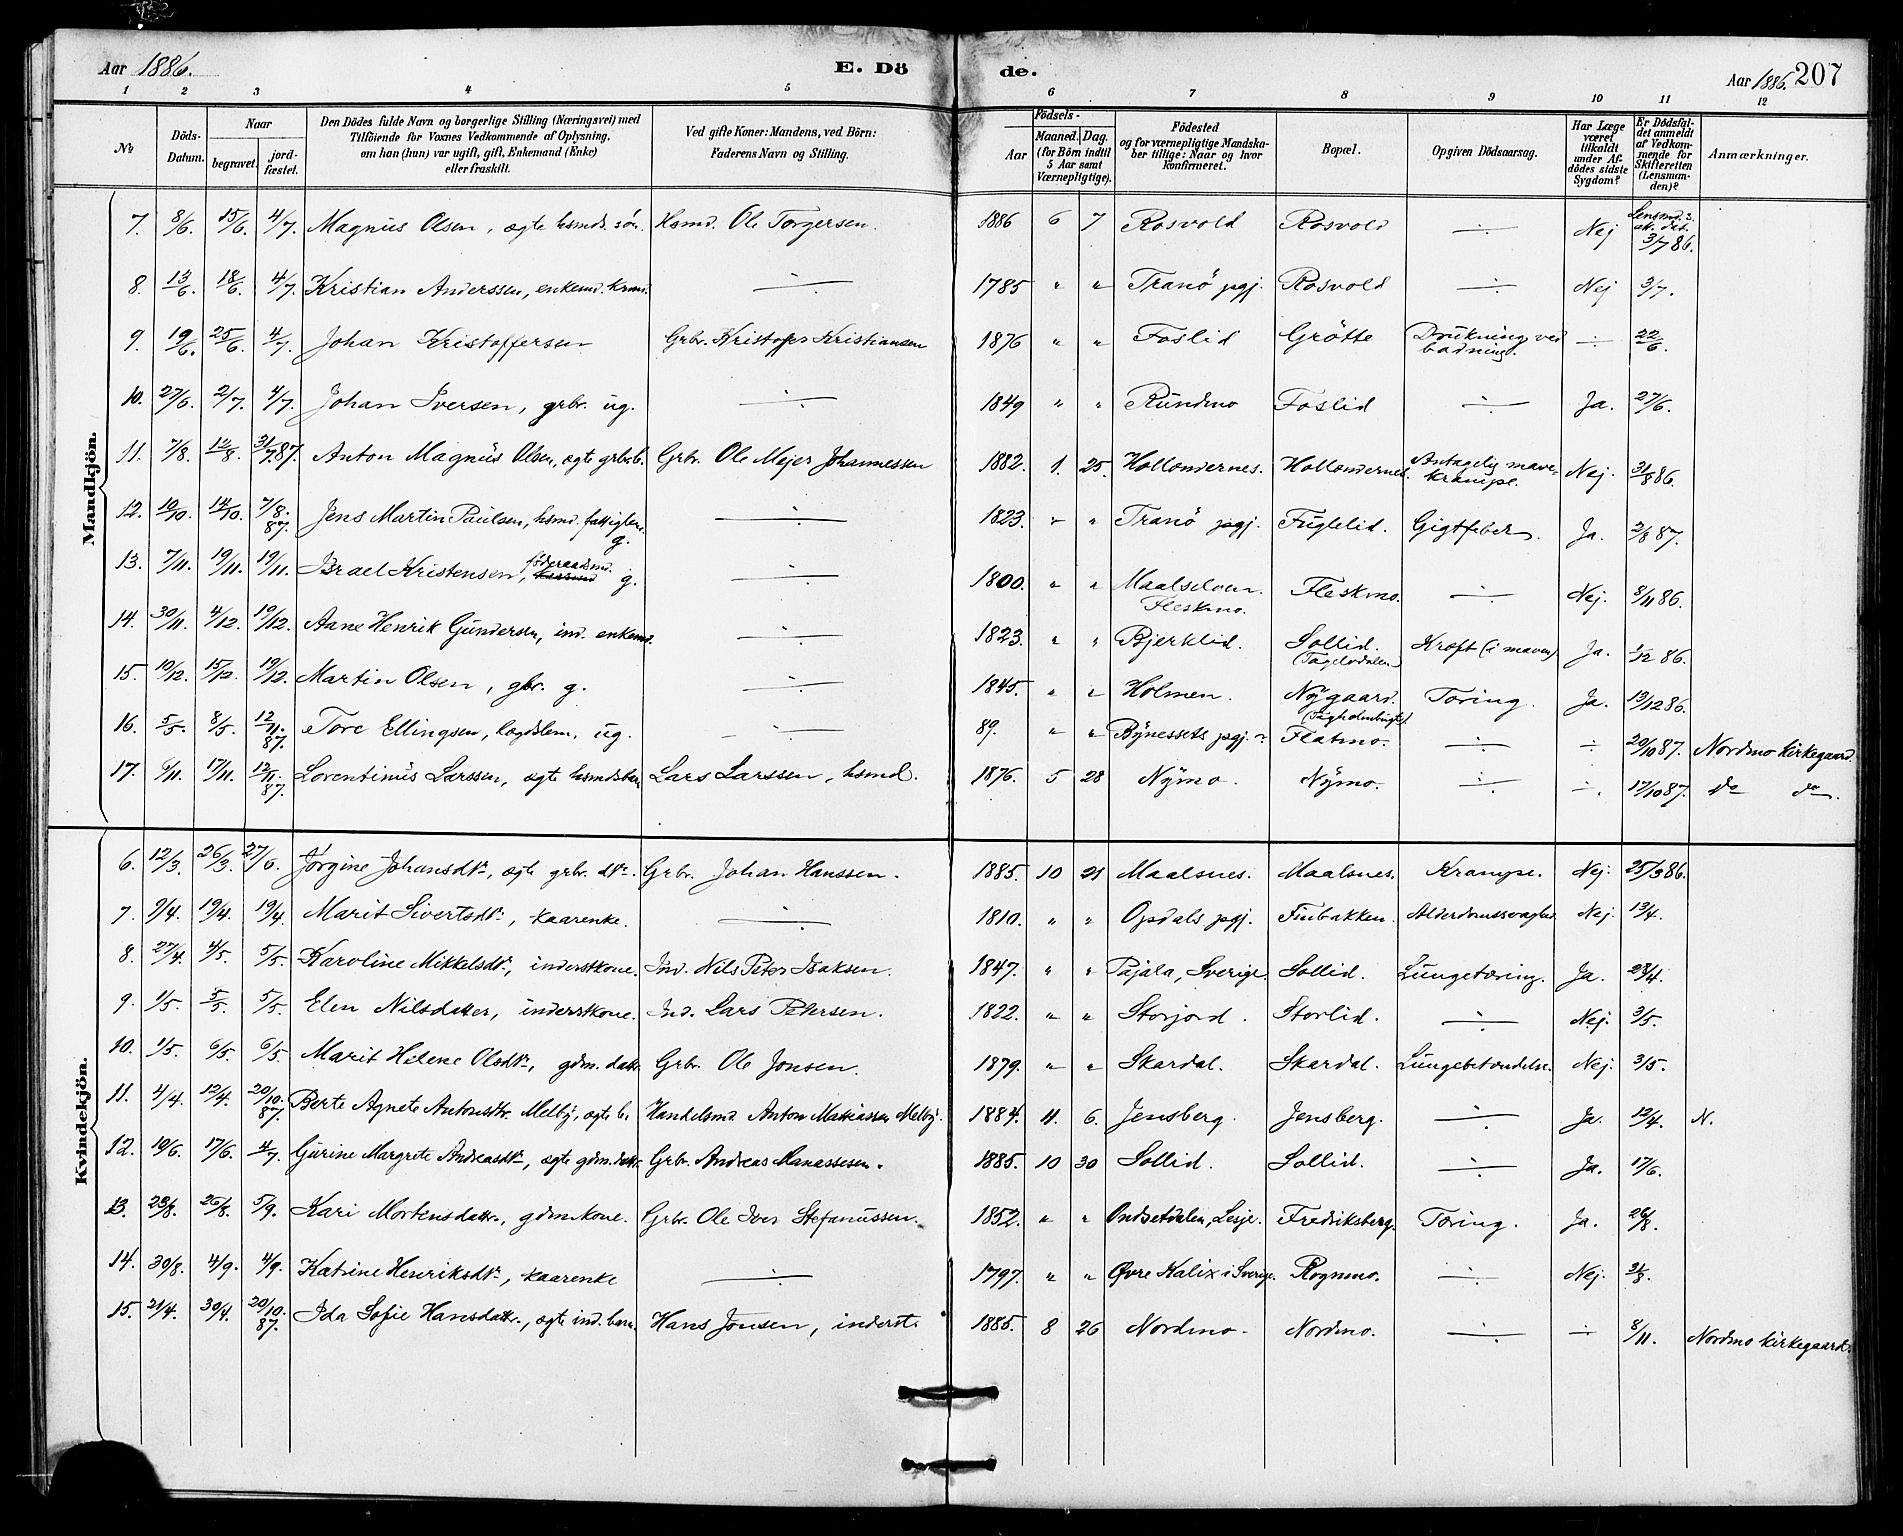 Aar 1886. E. Dö de. Aar 1886. 207
1 2 3 4 5 6 7 8 9 10 11 12
No
Döds-Datum.
Naar
begravet.
jord-fæstet.
Den Dödes fulde Navn og borgerlige Stilling (Næringsvei) med
Tilföiende for Voxnes Vedkommende af Oplysning,
om han (hun) var ugift, gift, Enkemand (Enke)
eller fraskilt.
Ved gifte Koner: Mandens, ved Börn:
Faderens Navn og Stilling.
Födsels-
Aar
Maaned. Dag.
(for Börn indtil
5 Aar samt
Værnepligtige).
Födested
og for værnepligtige Mandska-
ber tillige: Naar og hvor
konfirmeret.
Bopæl.
Opgiven Dödsaarsag.
Har Læge
været
tilkaldt
under Af-
dödes sidste
Sygdom?
Er Dödsfal-
det anmeldt
af Vedkom-
mende for
Skifteretten
(Lensman-
den)?
Anmærkninger.
Mandkjön.
7. 8/6. 15/6. 4/7. Magnus Olsen, ægte husmds. sön. Husmd. Ole Torgersen. 1886 6 7 Rosvold Rosvold ÷ Nej Lensmd.s att. dat. 3/7 86.
8. 13/6. 18/6. 4/7. Kristian Anderssen, enkemd. ÷ 1785 " " Tranö pgj. Rosvold ÷ Nej 3/7.
9. 19/6. 25/6. 4/7. Johan Kristoffersen Grbr. Kristoffer Kristiansen 1876 " " Foslid Grötte Drukning ved badning. ÷ 22/6.
10. 27/6. 2/7. 4/7. Johan Iversen, grbr. ug. ÷ 1849 " " Rundmo Foslid ÷ Ja. 27/6.
11. 7/8. 12/8. 31/7 87. Anton Magnus Olsen, ægte grbr.b. Grbr. Ole Mejer Johannessen 1882. 1. 25. Hollendernes. Hollendernes. Antagelig mave-krampe. Nej. 31/8 86.
12. 10/10. 14/10. 7/8. 87. Jens Martin Paulsen, husmd. fattiglem. g. ÷ 1823. " " Tranö pgj. Fuglelid. Gigtfeber. Ja. 2/8 87.
13. 7/11. 19/11. 19/11. Israel Kristensen, föderaadsmd. g. ÷ 1800. " " Maalselven. Fleskmo. Fleskmo. ÷ Nej. 8/11 86.
14. 30/11. 4/12. 19/12. Aane Henrik Gundersen, ind. enkemd. ÷ 1823. " " Bjerklid. Sollid. Kræft (i maven) Ja. 1/12 86.
15. 10/12. 15/12. 19/12. Martin Olsen, gbr. g. ÷ 1845. " " Holmen. Nygaard. Tæring. Ja. 13/12 86.
16. 5/5. 8/5. 12/11. 87. Tore Ellingsen, lægdslem. ug. ÷ 89. " " Bynessets pgj. Flatmo. ÷ ÷ 20/10 87. Nordmo kirkegaard.
17. 6/11. 17/11. 12/11. 87. Lorentinus Larssen, ægte husmdsbarn Lars Larssen, husmd. 1876. 5 28 Nymo. Nymo. ÷ ÷ 17/10 87. do do.
Kvindekjön.
6. 12/3. 26/3. 27/6. Jörgine Johansdtr., ægte grbr. dtr. Grbr. Johan Hanssen. 1885. 10 21 Maalsnes. Maalsnes. Krampe. Nej. 25/3 86.
7. 9/4. 19/4. 19/4. Marit Sivertsdtr., kaarenke. ÷ 1810. " " Opdals pgj. Finbakken. Alderdomssvaghed. Nej. 13/4.
8. 27/4. 4/5. 5/5. Karoline Mikkelsdtr., inderstkone. Ind. Nils Peter Isaksen. 1847. " " Pajala, Sverige. Sollid. Lungetæring. Ja. 28/4.
9. 1/5. 5/5. 5/5. Elen Nilsdatter, inderstkone. Ind. Lars Petersen. 1822. " " Storjord. Storlid. ÷ Nej. 3/5.
10. 1/5. 6/5. 6/5. Marit Helene Olsdtr., gdm. datr. Grbr. Ole Jonsen. 1879. " " Skardal. Skardal. Lungebetændelse. Nej. 3/5.
11. 4/4. 12/4. 20/10. 87. Berte Agnete Antonsdtr. Melby, ægte b. Handelsmd. Anton Mathiassen Melby. 1884. 11. 6. Jensberg. Jensberg. ÷ Ja. 12/4. N.
12. 10/6. 17/6. 4/7. Gurine Margrete Andreasdtr., ægte gdm. datr. Grbr. Andreas Manassesen. 1885. 10 30 Sollid. Sollid. ÷ Ja. 17/6.
13. 23/8. 26/8. 5/9. Kari Mortensdatr., gdmkone. Grbr. Ole Iver Stefanussen. 1852. " " Ondsetdalen, Lesje. Fredriksberg. Tæring. Ja. 26/8.
14. 30/8. 4/9. 4/9. Katrine Henriksdtr., kaarenke ÷ 1797. " " Øvre Kalix i Sverige. Rognmo. ÷ Nej. 31/8.
15. 21/4. 30/4. 20/10. 87. Ida Sofie Hansdatr., ægte ind. barn. Hans Jonsen, inderst. 1885. 8 26 Nordmo. Nordmo. ÷ ÷ 8/11. Nordmo kirkegaard.